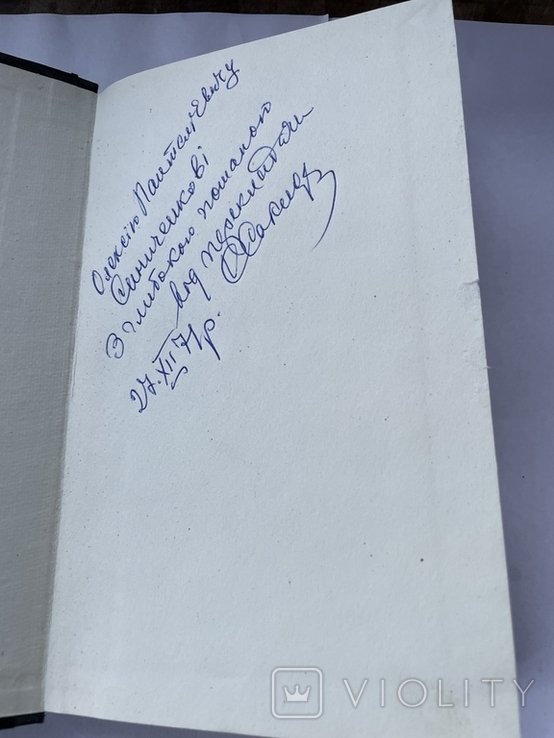 Олексію Пантелієвичу
Синиченкові
З глибокою пошаною
від перекладача
27.XII 71 р.
VIOLITY